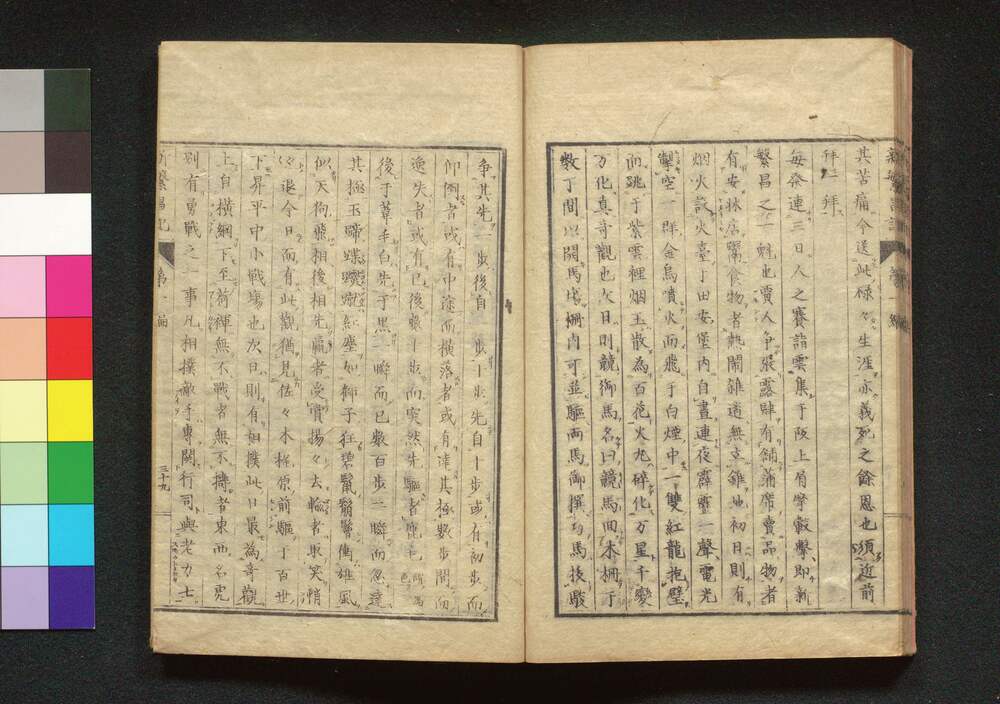 其苦痛今送此碌々生涯亦義死之餘恩也須近前
拜一拜
每祭連三日人之賽詣雲集于阪上肩摩轂擊即新
繁昌之一魁也賈人爭張露肆有鋪蒲席賣品物者
有安牀店鬻食物者熱鬧雜遝無立錐地初日則有
烟火設火臺于田安堡內自晝連夜霹靂一聲電光
掣空一群金烏噴火而飛于白煙中一雙紅龍抱璧
而跳于紫雲裡烟玉散為百花火丸碎化万星千變
万化真奇觀也次日則競御馬名曰競馬回木柵于
數丁間以開馬場柵內可並驅兩馬御撰巧馬技駿
爭其先一步後自一步十步先自十步或有初步而
仰倒者或有中途而橫落者或有達其極數步間而
逸失者或有已後數十步而突然先驅者鹿毛
後于葦毛白先于黑一瞬而已數百步二瞬而忽達
其極玉蹄蹀躞蹴紅塵如獅子狂碧鬣鬚鬐衝雄風
似天狗飛相後相先贏者受賞揚々去輸者取笑悄
々退今日而有此觀猶見佐々木梶原前驅于百世
下昇平中小戰場也次日則有相撲此日最為奇觀
上自橫綱下至荷褌無不戰者無不搏者東西名兜
別有勇戰之一事凡相撲敵手專關行司與老力士
三十九